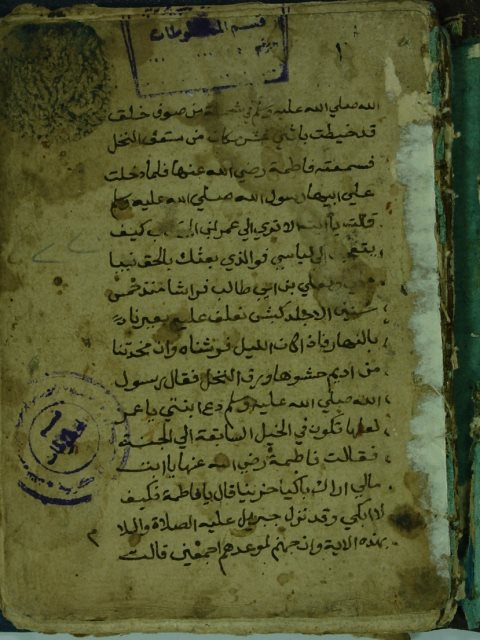 قسم المخطوطات
الله صلي الله عليه وسلم في شملة من صوف خلق
قد خيطت باثني عشر مكان من سعف النخل
فسمعته فاطمة رضي الله عنها فلما دخلت
علي ابيها رسول الله صلي الله عليه وسلم
قالت يا الا تري الي عمر بن الخطاب كيف
يتعجب الي لباسي فوالذي بعثك بالحق نبيا
ما لي ولعلي بن ابي طالب فراشا منذ خمس
سنين الا جلد كبش نعلف عليه بعيرنا
بالنهار فاذا كان الليل فرشناه وان مخدتنا
من اديم حشوها ورق النخل فقال رسول
الله صلي الله عليه وسلم دع ابنتي يا عمر
لعلها تكون في الخيل السابقة الي الجنة
فقالت فاطمة رضي الله عنها يا ابت
مالي اراك باكيا حزينا قال يا فاطمة وكيف
لا ابكي وقد نزل جبريل عليه الصلاة والسلام
بهذه الاية وان جهنم لموعدهم اجمعين قالت